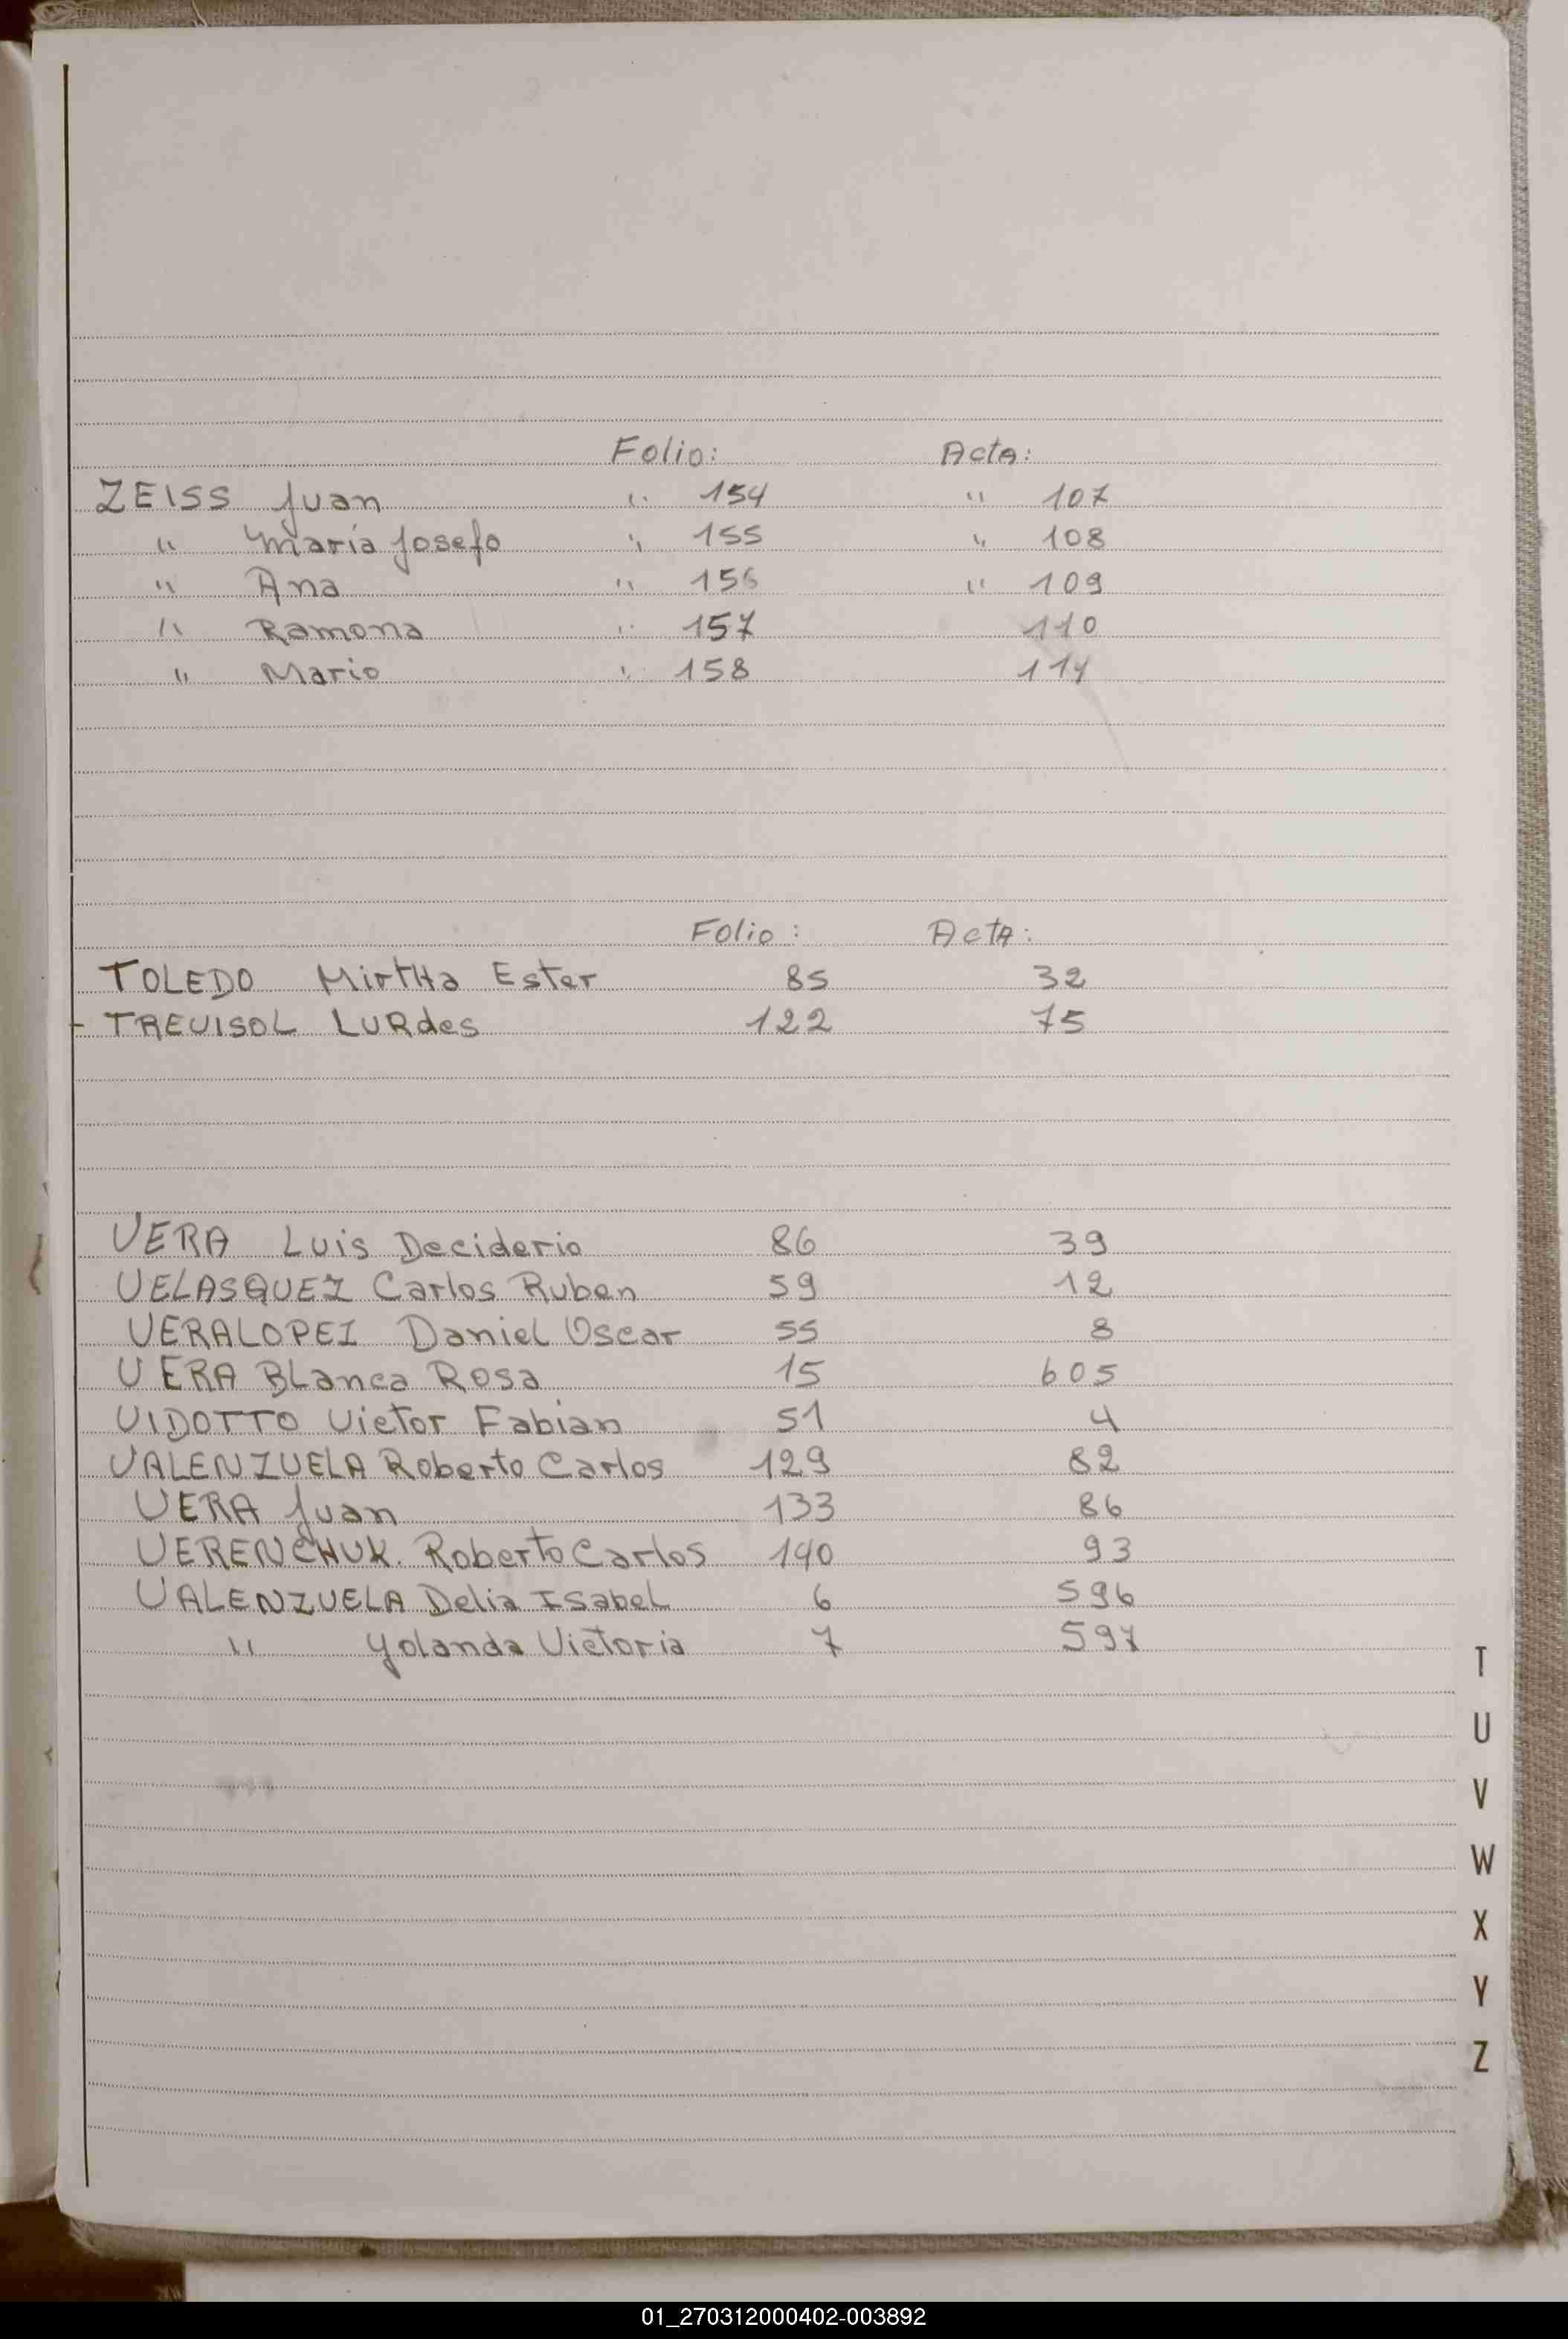 Folio: Acta:
ZEISS Juan " 154 " 107
" María Josefa " 155 " 108
" Ana " 156 " 109
" Ramona " 157 110
" Mario " 158 111
Folio: Acta:
TOLEDO MirtHa Ester 85 32
- TREVISOL LURdes 122 75
VERA Luis Deciderio 86 39
VELASQUEZ Carlos Ruben 59 12
VERALOPEZ Daniel Oscar 55 8
VERA BLanca Rosa 15 605
VIDOTTO Victor Fabian 51 4
VALENZUELA Roberto Carlos 129 82
VERA Juan 133 86
VERENCHUK. Roberto Carlos 140 93
VALENZUELA Delia ISabeL 6 596
" Yolanda Victoria 7 597
T
U
V
W
X
Y
Z
01_270312000402-003892